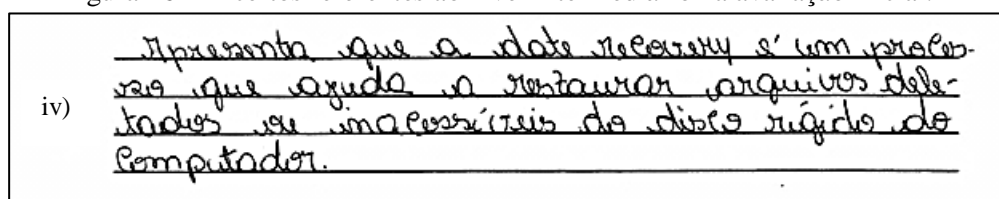 Apresenta que a date recovery é um proces-
iv) so que ajuda a restaurar arquivos dele-
tados ou inacessíveis do disco rígido do
computador.